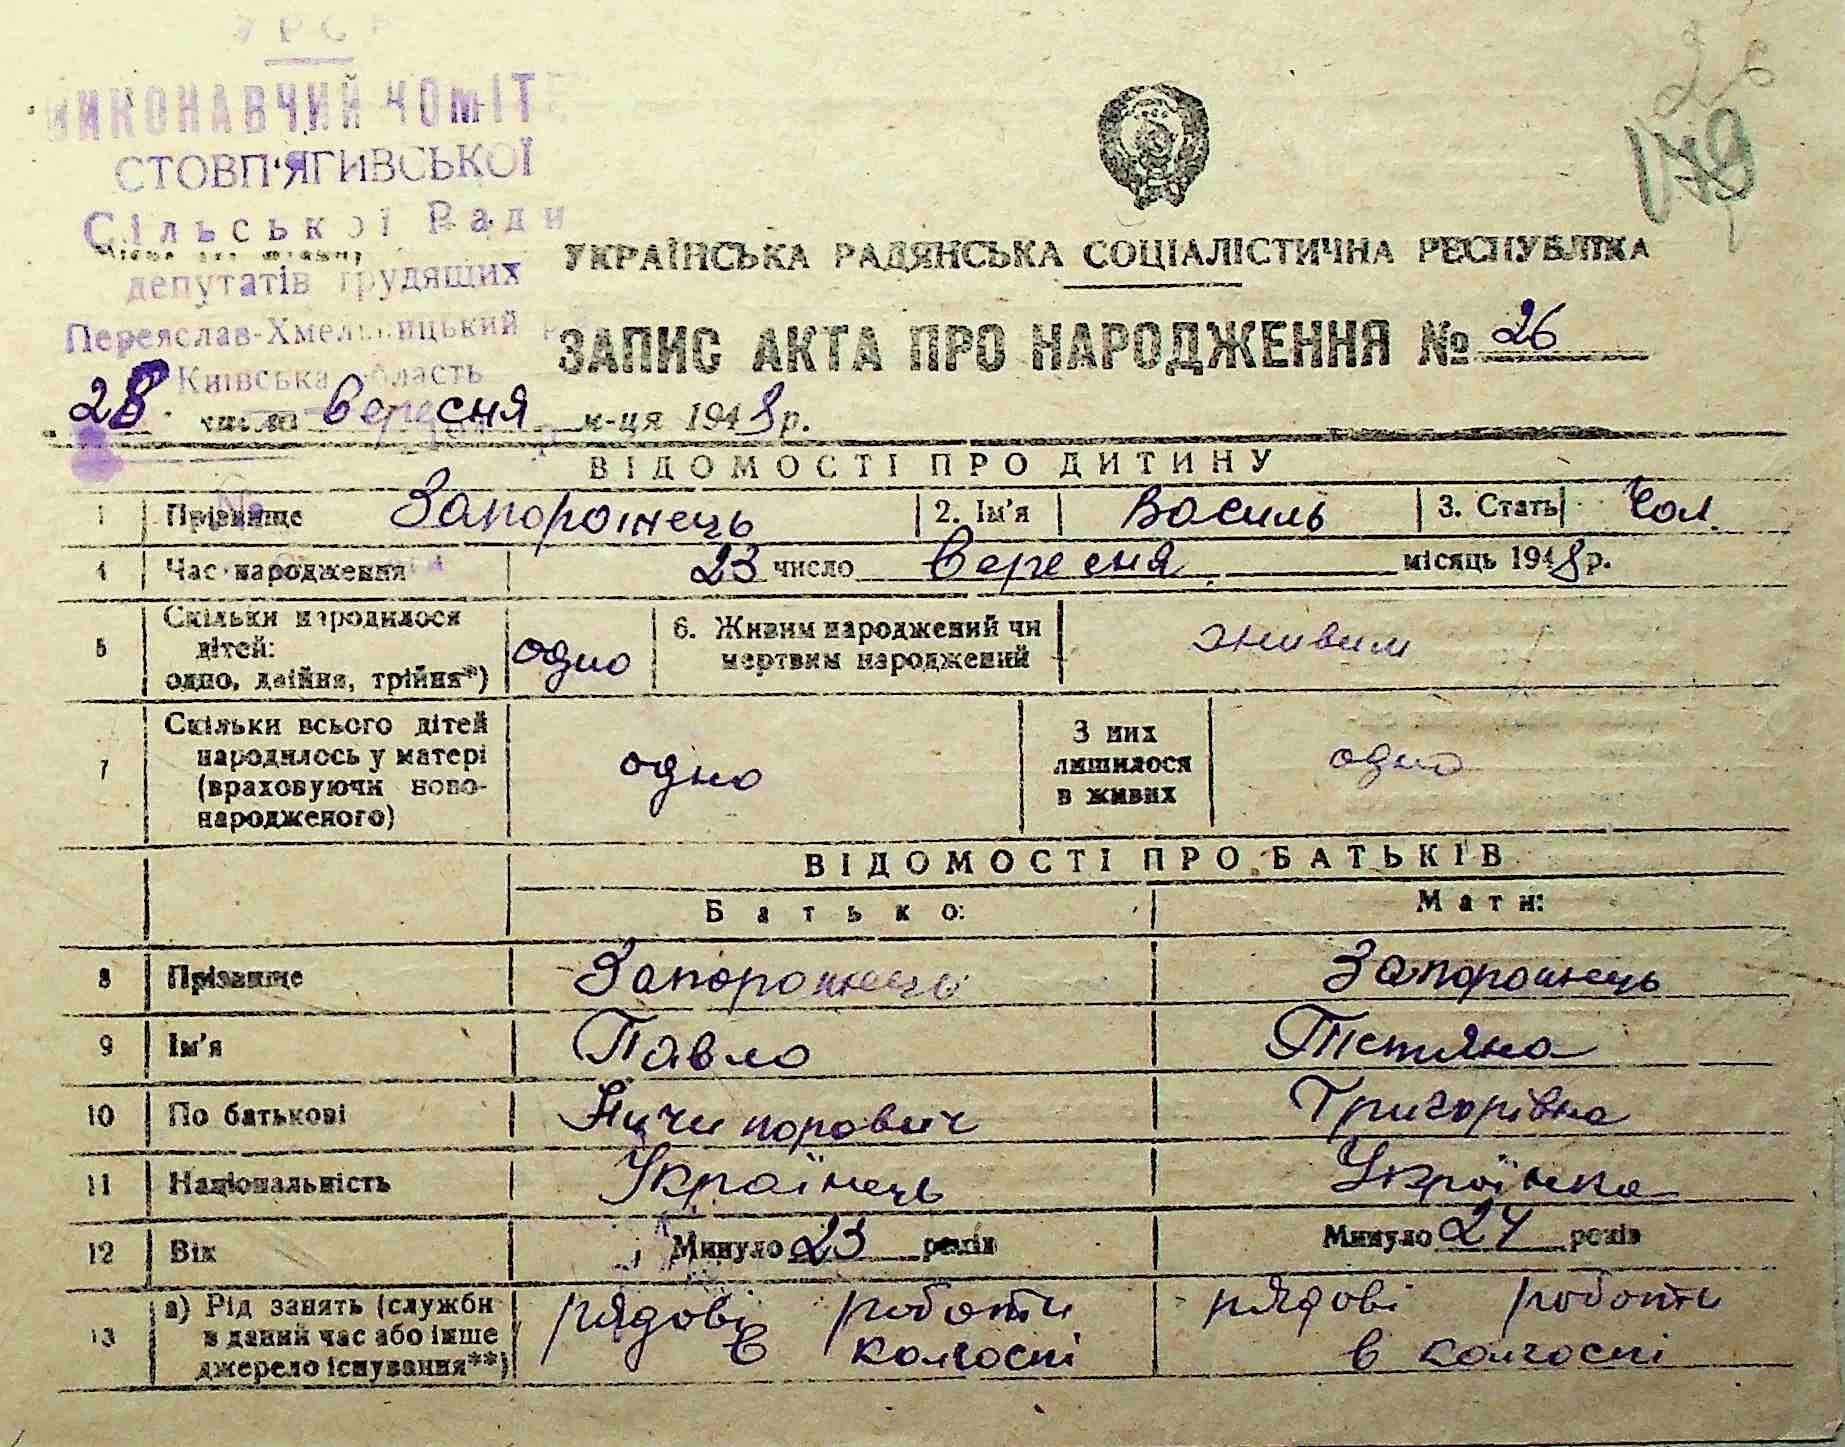 УРСР
ВИКОНАВЧИЙ КОМІТЕ
СТОВП'ЯГИВСЬКОЇ
Сільської Ради
депутатів трудящих
Переяслав-Хмельницький
Київська область
26
179
УКРАЇНСЬКА РАДЯНСЬКА СОЦІАЛІСТИЧНА РЕСПУБЛІКА
ЗАПИС АКТА ПРО НАРОДЖЕННЯ № 26
28 число вересня м-ця 1948 р.
ВІДОМОСТІ ПРО ДИТИНУ
1 Прізвище Запорожець 2. Ім'я Василь 3. Стать Чол.
4 Час народження 23 число Вересня місяць 1948 р.
5 Скільки народилося дітей: одно, двійня, трійня*) одно 6. Живим народжений чи мертвим народжений живим
7 Скільки всього дітей народилось у матері (враховуючи ново-народженого) одно З них лишилося в живих одно
ВІДОМОСТІ ПРО БАТЬКІВ
Батько: Мати:
8 Прізвище Запорожець Запорожець
9 Ім'я Павло Тетяна
10 По батькові Ничипорович Григорівна
11 Національність Українець Українка
12 Вік Минуло 23 років Минуло 24 років
13 а) Рід занять (служби в даний час або інше джерело існування**) рядові роботи в колгоспі рядові роботи в колгоспі